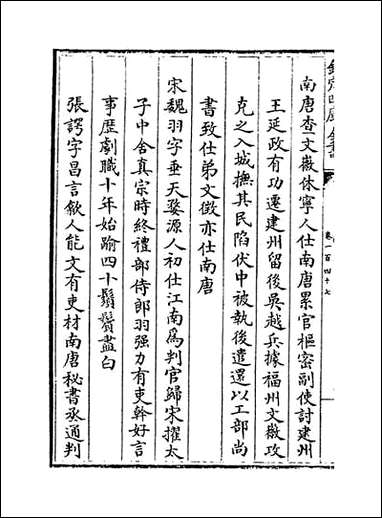 欽定四庫全書
卷一百四十七
南唐查文徽休寧人仕南唐累官樞密副使討建州
王延政有功遷建州留後吳越兵據福州文徽攻
克之入城撫其民陷伏中被執後遣還以工部尚
書致仕弟文徵亦仕南唐
宋魏羽字垂天婺源人初仕江南為判官歸宋擢太
子中舍真宗時終禮部侍郎羽强力有吏幹好言
事歴劇職十年始踰四十鬚鬢盡白
張諤字昌言歙人能文有吏材南唐秘書丞通判